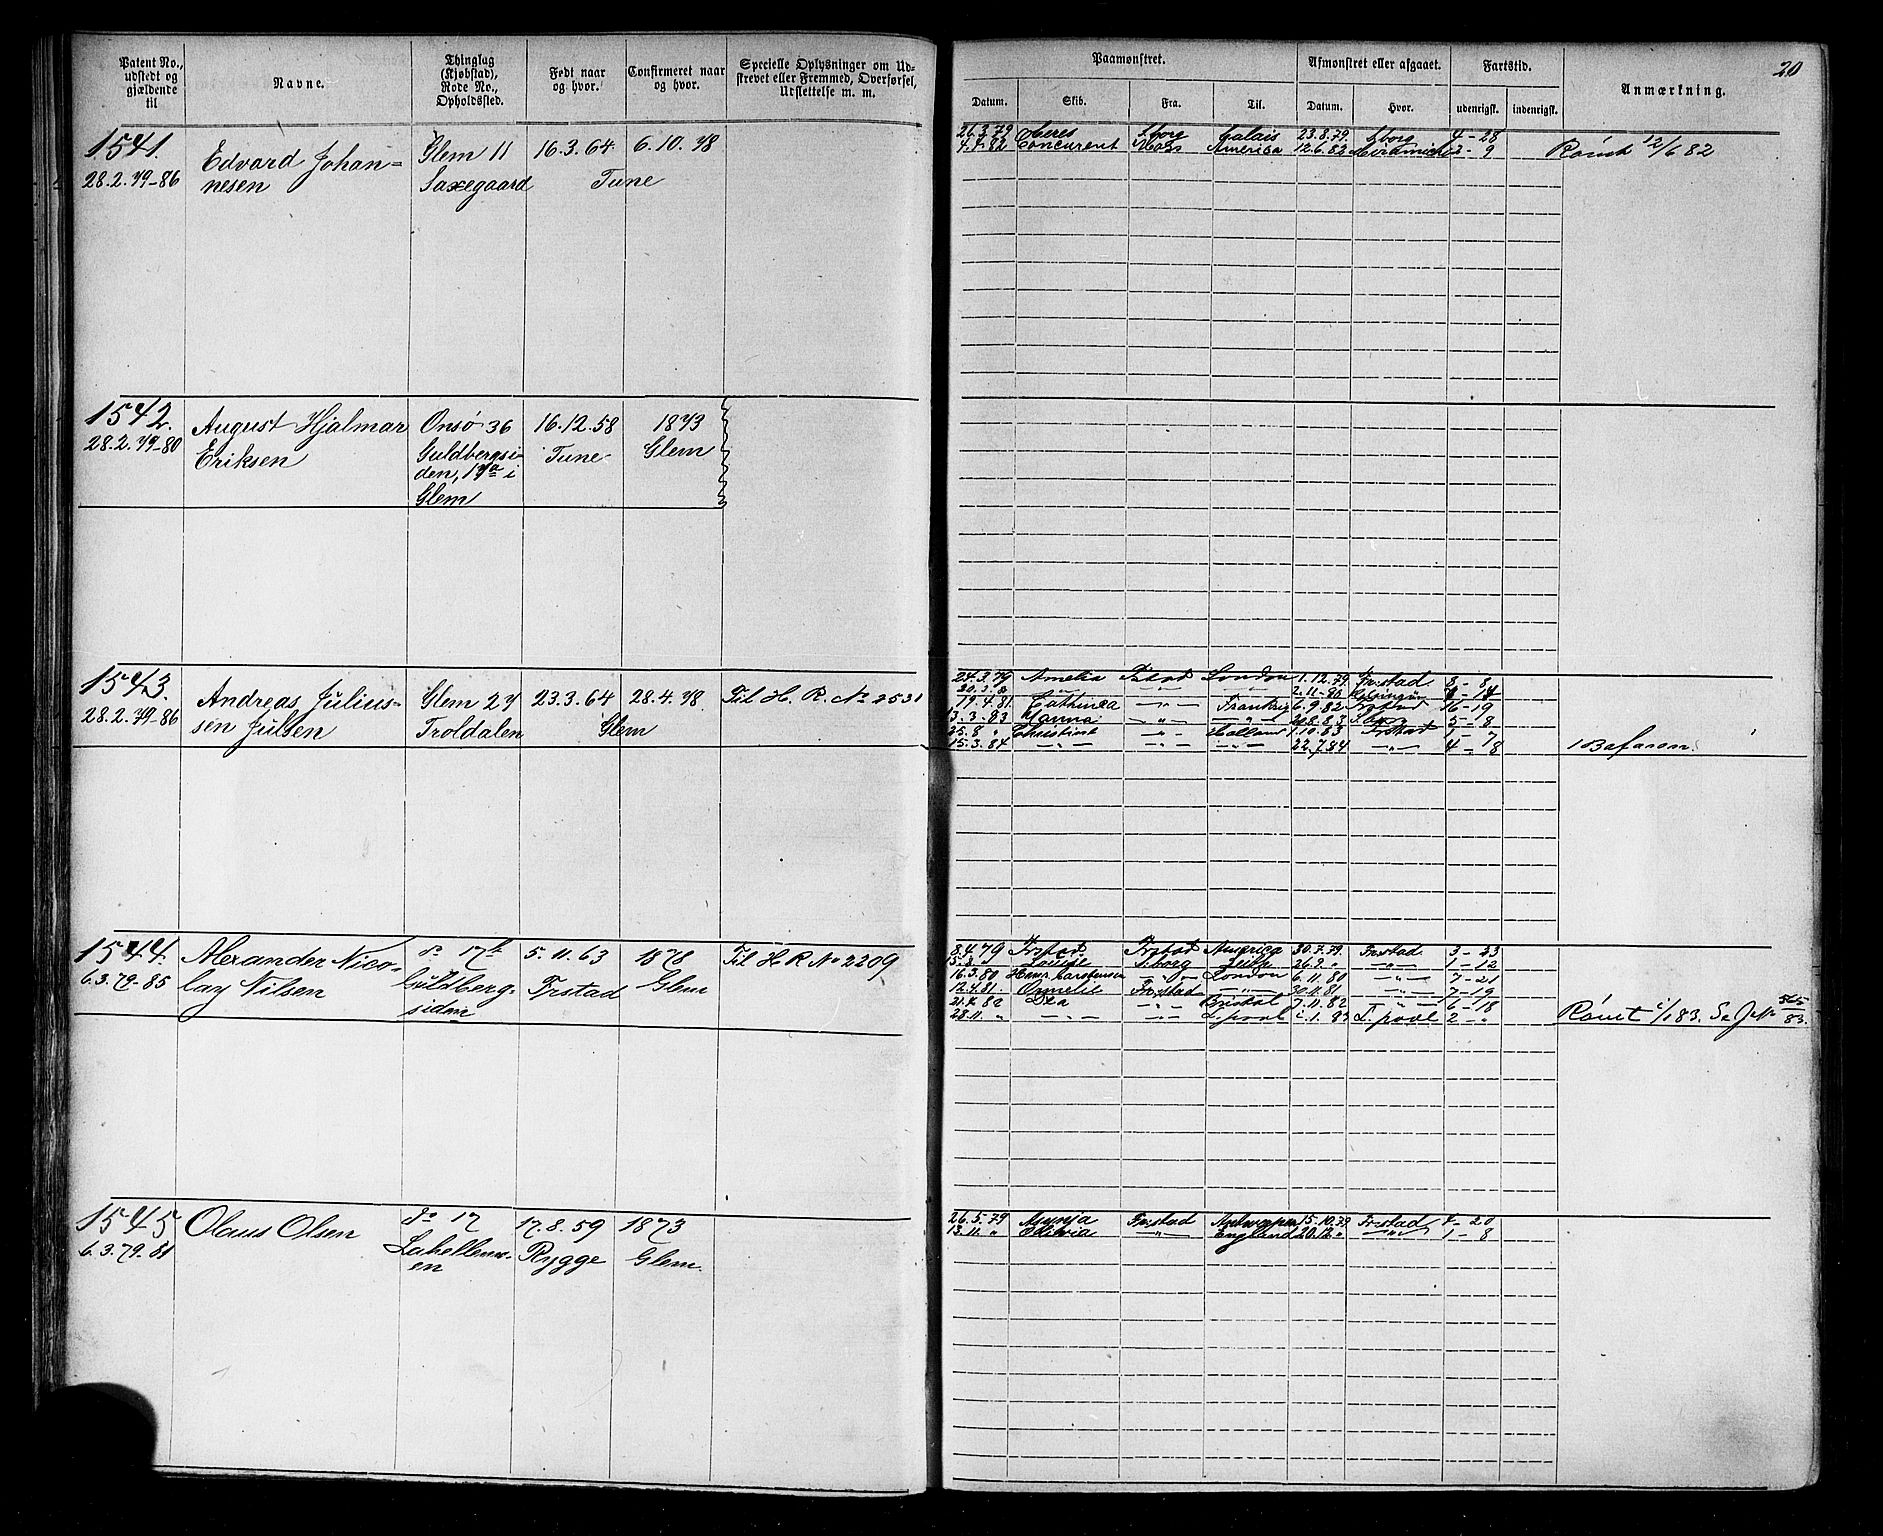 Patent No., udstedt og gjældende til
Navne.
Thinglag (Kjøbstad), Rode No., Opholdssted.
Født naar og hvor.
Confirmeret naar og hvor.
Specielle Oplysninger om Udskrevet eller Fremmed, Overførsel, Udslettelse m. m.
Paamønstret.
Afmønstret eller afgaaet.
Fartstid.
Anmærkning.
20
Datum.
Skib.
Fra.
Til.
Datum.
Hvor.
udenrigsk.
indenrigsk.
1541.
28.2.79-86
Edvard Johan-
nesen
Glem 11
Saxegaard
16.3.64 6.10.78
Tune
26.3.79 Ceres Sborg Calais 23.8.79 Sborg 4-28
4.4.82 Concurent Moss America 12.6.82 Miramichi 2-9 Rømt 12/6 82
1542.
28.2.79-80
August Hjalmar
Eriksen
Onsø 36
Guldbergsi-
den, 17a i
Glem
16.12.58
Tune
1873
Glem
1543.
28.2.79-86
Andreas Julius-
sen Julsen
Glem 27
Troldalen
23.3.64 28.4.78
Glem
Til H. R. No 2531
24.3.79 Amelia Frstad London 1.12.79 Frstad 8-8
19.4.81 Cathinca -"- Frankrig 6.9.82 16-19
13.3.83 Hanna -"- -"- 20.8.83 Sborg 5-8
25.8 " Christine -"- Holland 1.10.83 Frstad 1-7
15.3.84 -"- -"- -"- 22.7.84 -"- 4-8 Bafaren.
1544.
6.3.79-85
Alexander Nico-
lay Nilsen
do 17b
Guldberg-
siden
5.11.63
Frstad
1878
Glem
Til H. R. No 2209
8.4.79 Frstad Frstad America 30.7.79 Frstad 3-23
Louise Sborg -"- 1-12
16.3.80 Hans Carstensen -"- London 6.11.80 -"- 7-21
12.4.81. Ommelie Frstad -"- 30.11.81 -"- 7-19
21.4.82 Dea -"- Bristol 7.11.82 -"- 6-18
28.11. " -"- -"- L.pool 1.83 L.pool 2-" Rømt 83. Se J No 565/83.
1545
6.3.79-81
Olaus Olsen
do 17
Lahellems-
en
17.8.59
Rygge
1873
Glem.
26.5.79 Frstad Antwerpen 15.10.79 Frstad 4-20
13.11. " Octavia -"- England 20.12 " -"- 1-8